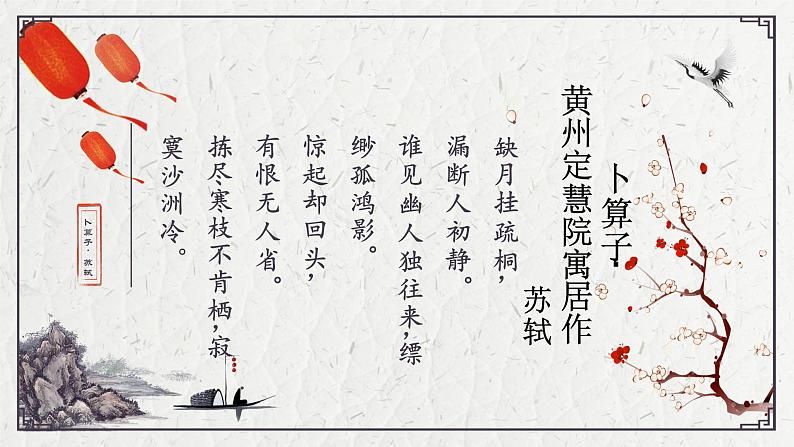 卜算子·
黄州定慧院寓居作
苏轼
缺月挂疏桐，
漏断人初静。
谁见幽人独往来，缥
缈孤鸿影。
惊起却回头，
有恨无人省。
拣尽寒枝不肯栖，寂
寞沙洲冷。
卜算子·苏轼